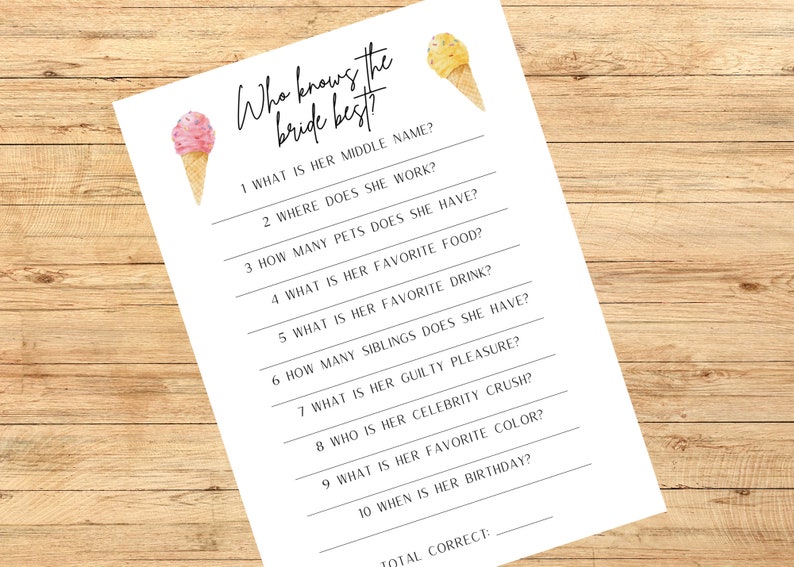 Who knows the
bride best?
1 WHAT IS HER MIDDLE NAME?
2 WHERE DOES SHE WORK?
3 HOW MANY PETS DOES SHE HAVE?
4 WHAT IS HER FAVORITE FOOD?
5 WHAT IS HER FAVORITE DRINK?
6 HOW MANY SIBLINGS DOES SHE HAVE?
7 WHAT IS HER GUILTY PLEASURE?
8 WHO IS HER CELEBRITY CRUSH?
9 WHAT IS HER FAVORITE COLOR?
10 WHEN IS HER BIRTHDAY?
TOTAL CORRECT: